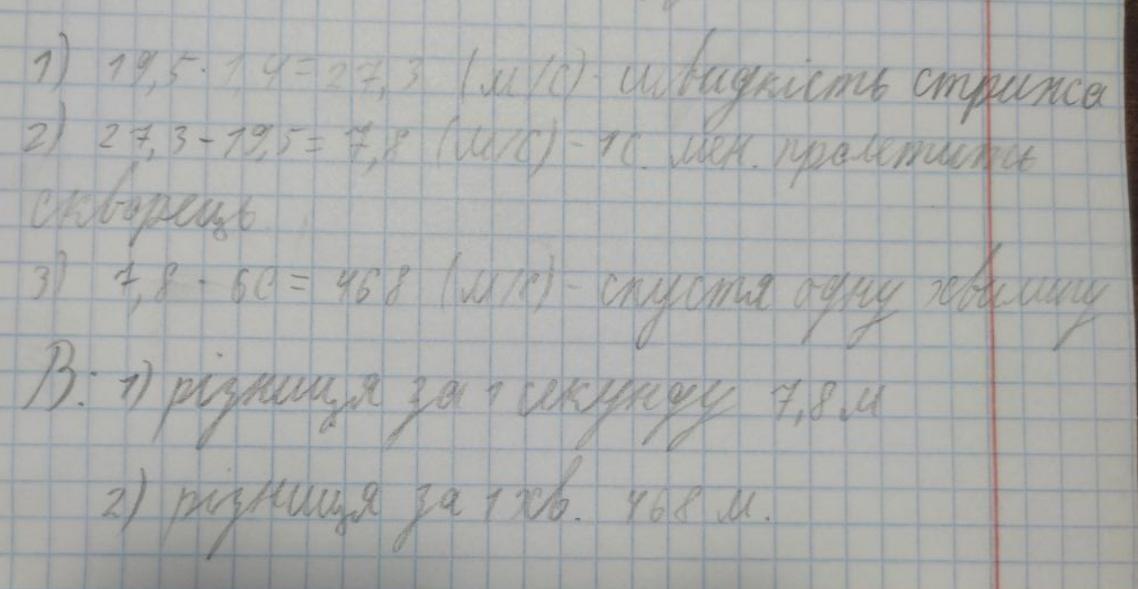 1) 19,5 · 1,4 = 27,3 (м/с) - швидкість стрижа
2) 27,3 - 19,5 = 7,8 (м/с) - 1с. мен. пролетить
скворець
3) 7,8 · 60 = 468 (м/с) - спустя одну хвилину
В: 1) різниця за 1 секунду 7,8 м
2) різниця за 1 хв. 468 м.